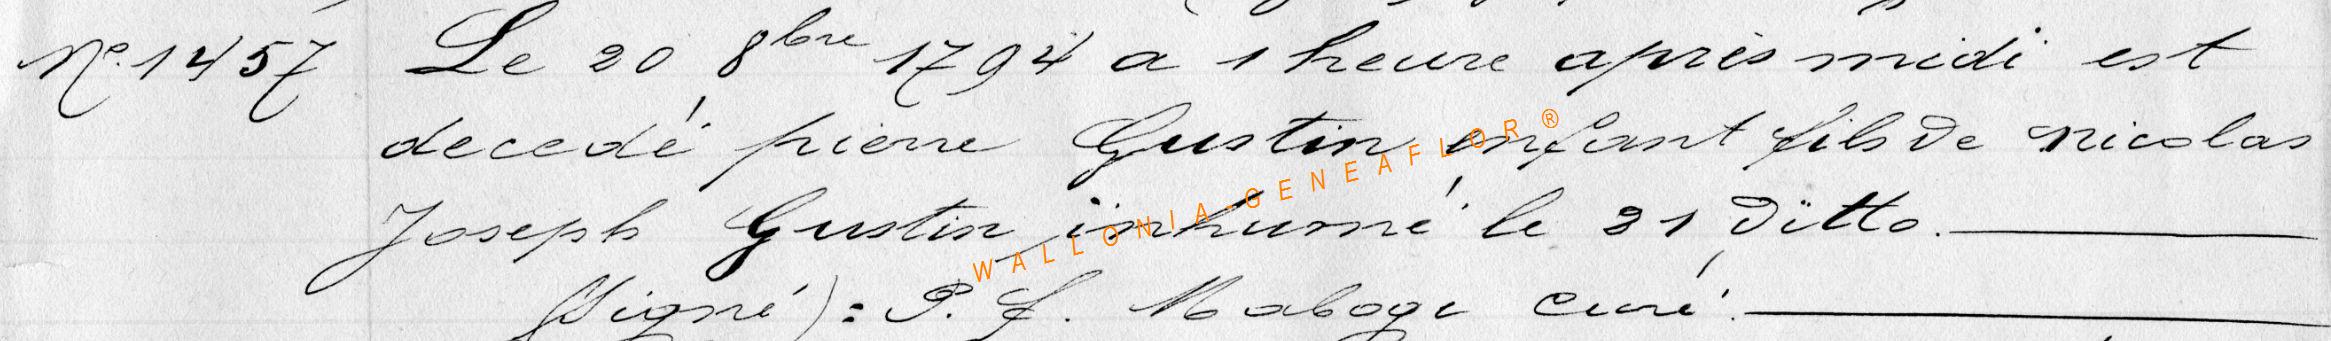 N°. 1457 Le 20 8bre 1794 a 1 heure après midi est
decedé pierre Gustin enfant fils de nicolas
Joseph Gustin, inhumé le 21 Ditto.
(Signé) : P. J. Maboge curé.
WALLONIA-GENEAFLOR®